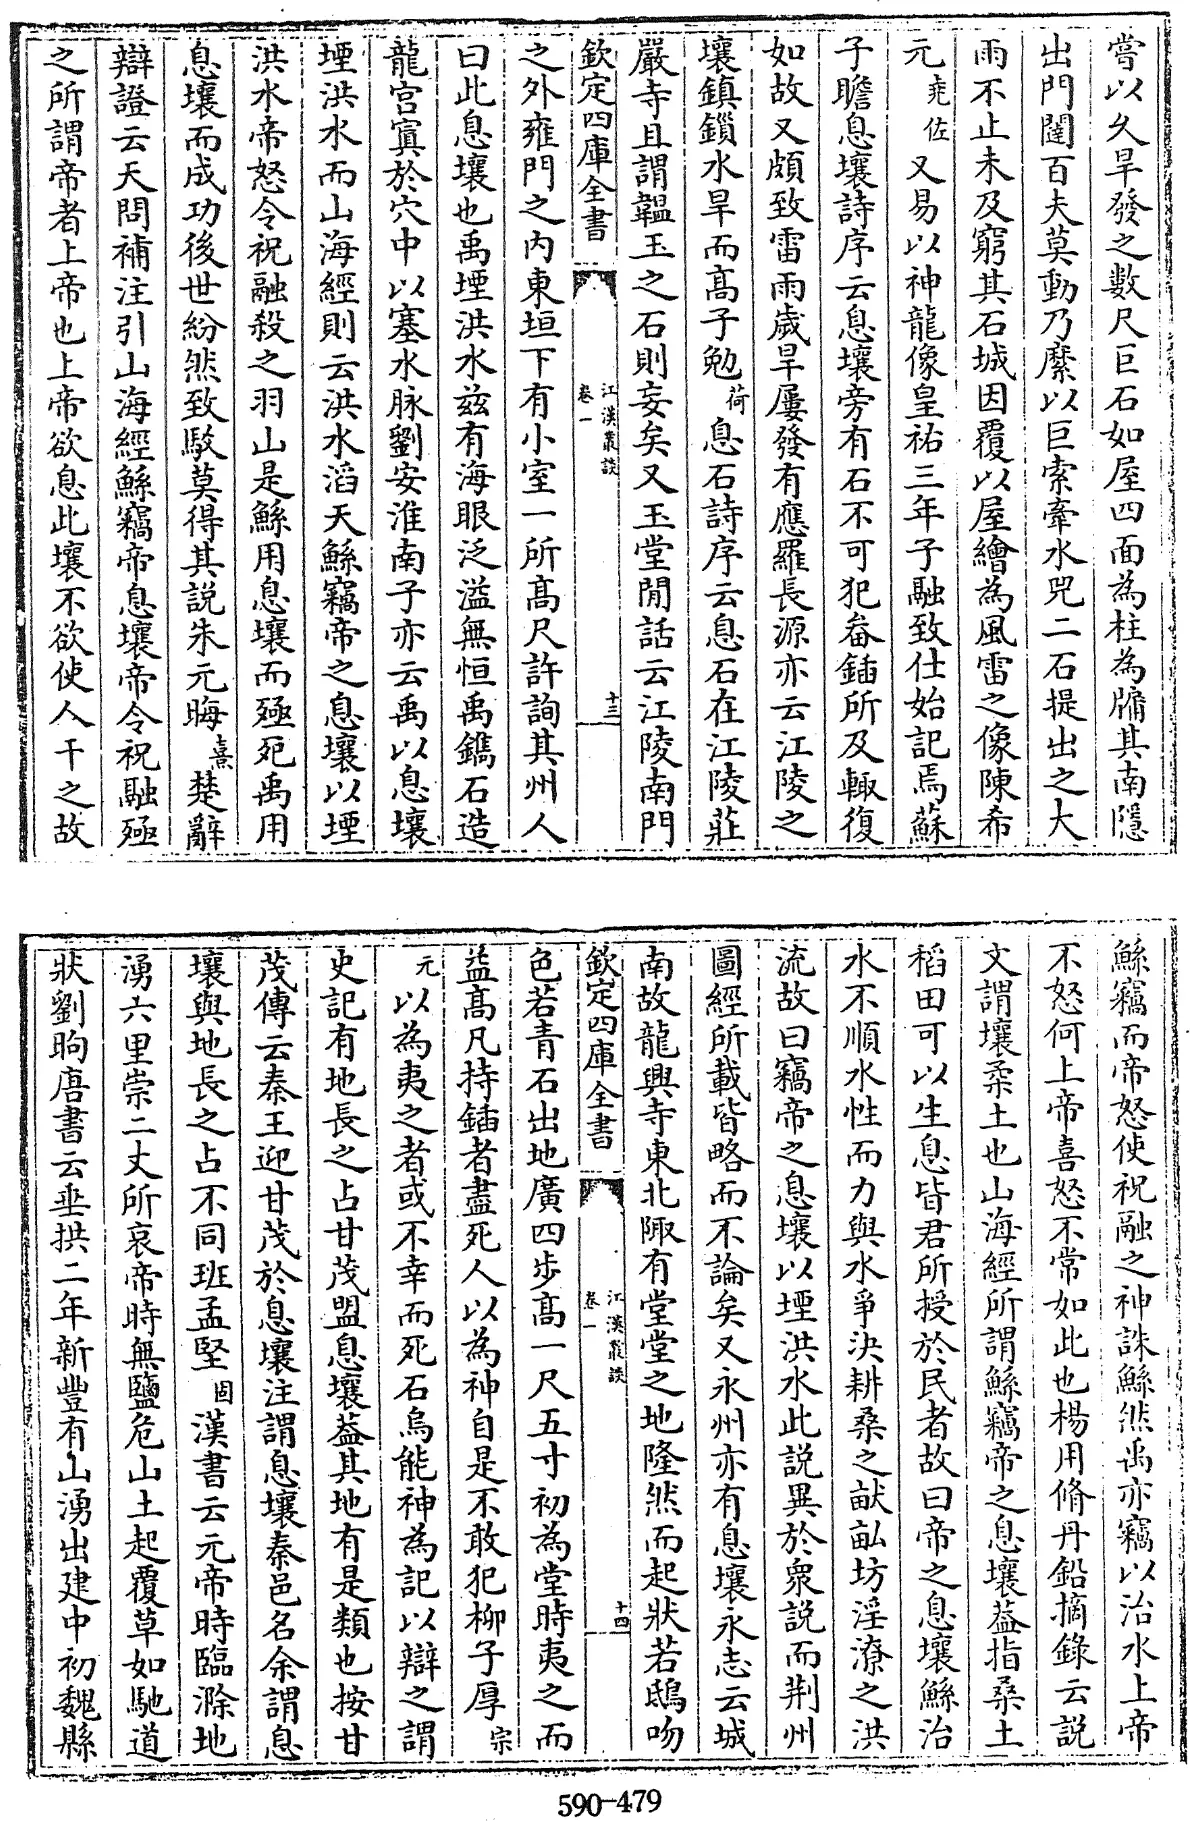 嘗以久旱發之數尺巨石如屋四面為柱為牖其南隱
出門闥百夫莫動乃縻以巨索牽水兕二石提出之大
雨不止未及窮其石城因覆以屋繪為風雷之像陳希
元堯佐又易以神龍像皇祐三年子融致仕始記焉蘇
子瞻息壤詩序云息壤旁有石不可犯畚鍤所及輒復
如故又頗致雷雨歲旱屢發有應羅長源亦云江陵之
壤鎮鎻水旱而髙子勉荷息石詩序云息石在江陵莊
嚴寺且謂韞玉之石則妄矣又玉堂閒話云江陵南門
欽定四庫全書
江漢叢談
卷一
十三
之外雍門之内東垣下有小室一所髙尺許詢其州人
曰此息壤也禹堙洪水兹有海眼泛溢無恒禹鐫石造
龍宫寘於穴中以塞水脉劉安淮南子亦云禹以息壤
堙洪水而山海經則云洪水滔天鯀竊帝之息壤以堙
洪水帝怒令祝融殺之羽山是鯀用息壤而殛死禹用
息壤而成功後世紛然致駮莫得其説朱元晦熹楚辭
辯證云天問補注引山海經鯀竊帝息壤帝令祝融殛
之所謂帝者上帝也上帝欲息此壤不欲使人干之故
鯀竊而帝怒使祝融之神誅鯀然禹亦竊以治水上帝
不怒何上帝喜怒不常如此也楊用脩丹鉛摘錄云説
文謂壤柔土也山海經所謂鯀竊帝之息壤葢指桑土
稻田可以生息皆君所授於民者故曰帝之息壤鯀治
水不順水性而力與水爭決耕桑之畎畝坊淫潦之洪
流故曰竊帝之息壤以堙洪水此説異於衆説而荆州
圖經所載皆略而不論矣又永州亦有息壤永志云城
南故龍興寺東北陬有堂堂之地隆然而起狀若鴟吻
欽定四庫全書
江漢叢談
卷一
十四
色若青石出地廣四步髙一尺五寸初為堂時夷之而
益髙凡持鍤者盡死人以為神自是不敢犯柳子厚宗
元以為夷之者或不幸而死石烏能神為記以辯之謂
史記有地長之占甘茂盟息壤葢其地有是類也按甘
茂傳云秦王迎甘茂於息壤注謂息壤秦邑名余謂息
壤與地長之占不同班孟堅固漢書云元帝時臨滁地
湧六里崇二丈所哀帝時無鹽危山土起覆草如馳道
狀劉昫唐書云垂拱二年新豐有山湧出建中初魏縣
590-479